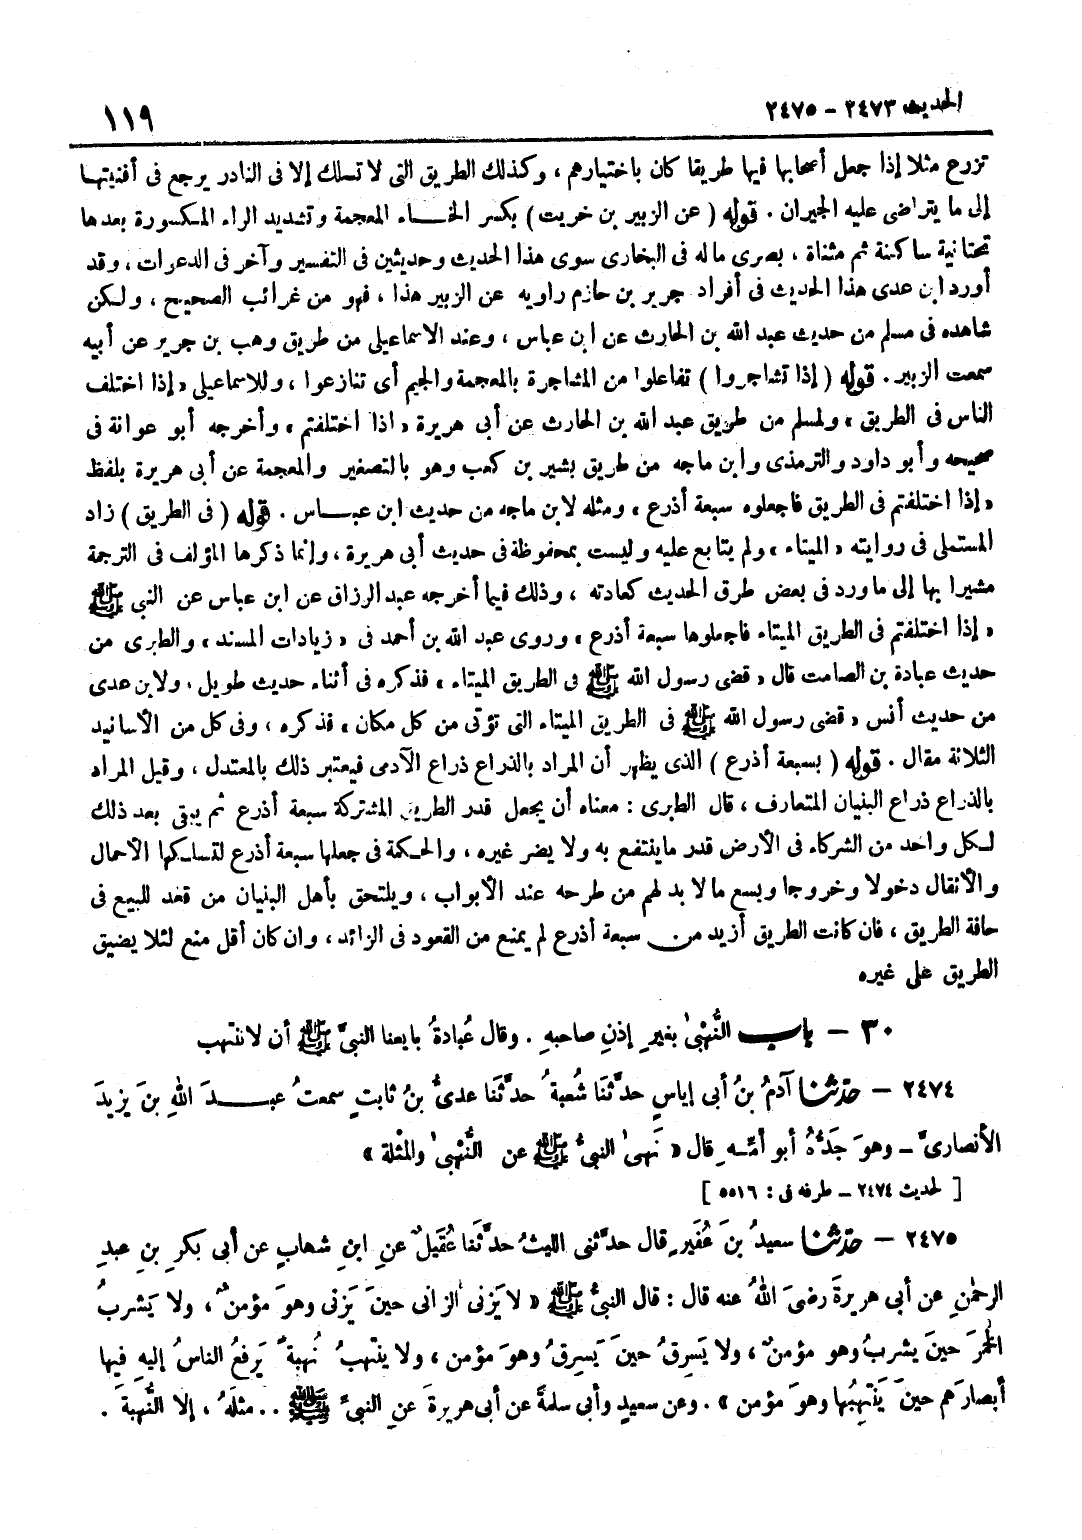 الحديث ٢٤٧٣ – ٢٤٧٥
١١٩
تزرع مثلا إذا جعل أصحابها فيها طريقا كان باختيارهم ، وكذلك الطريق التى لا تسلك إلا فى النادر يرجع فى أفنيتها
إلى ما يتراضى عليه الجيران . قوله ( عن الزبير بن خريت ) بكسر الخاء المعجمة وتشديد الراء المكسورة بعدها
تحتانية ساكنة ثم مثناة ، بصرى ماله فى البخارى سوى هذا الحديث وحديثين فى التفسير وآخر فى الدعوات ، وقد
أورد ابن عدى هذا الحديث فى أفراد جرير بن حازم راويه عن الزبير هذا ، فهو من غرائب الصحيح ، ولكن
شاهده فى مسلم من حديث عبد الله بن الحارث عن ابن عباس ، وعند الاسماعيلى من طريق وهب بن جرير عن أبيه
سمعت الزبير . قوله ( إذا تشاجروا ) تفاعلوا من المشاجرة بالمعجمة والجيم أى تنازعوا ، وللاسماعيلى « إذا اختلف
الناس فى الطريق » ولمسلم من طريق عبد الله بن الحارث عن أبى هريرة « اذا اختلفتم » وأخرجه أبو عوانة فى
صحيحه وأبو داود والترمذى وابن ماجه من طريق بشير بن كعب وهو بالتصغير والمعجمة عن أبى هريرة بلفظ
« إذا اختلفتم فى الطريق فاجعلوه سبعة أذرع » ومثله لابن ماجه من حديث ابن عباس . قوله ( فى الطريق ) زاد
المستملى فى روايته « الميتاء » ولم يتابع عليه وليست بمحفوظة فى حديث أبى هريرة ، وإنما ذكرها المؤلف فى الترجمة
مشيرا بها إلى ما ورد فى بعض طرق الحديث كعادته ، وذلك فيما أخرجه عبد الرزاق عن ابن عباس عن النبى ﷺ
« إذا اختلفتم فى الطريق الميتاء فاجعلوها سبعة أذرع » وروى عبد الله بن أحمد فى « زيادات المسند » والطبرى من
حديث عبادة بن الصامت قال « قضى رسول الله ﷺ فى الطريق الميتاء » فذكره فى أثناء حديث طويل ، ولابن عدى
من حديث أنس « قضى رسول الله ﷺ فى الطريق الميتاء التى تؤتى من كل مكان » فذكره ، وفى كل من الأسانيد
الثلاثة مقال . قوله ( بسبعة أذرع ) الذى يظهر أن المراد بالذراع ذراع الآدمى فيعتبر ذلك بالمعتدل ، وقيل المراد
بالذراع ذراع البنيان المتعارف ، قال الطبرى : معناه أن يجعل قدر الطريق المشتركة سبعة أذرع ثم يبقى بعد ذلك
لكل واحد من الشركاء فى الأرض قدر ما ينتفع به ولا يضر غيره ، والحكمة فى جعلها سبعة أذرع لتسلكها الأحمال
والأثقال دخولا وخروجا ويسع ما لا بد لهم من طرحه عند الأبواب ، ويلتحق بأهل البنيان من قعد للبيع فى
حافة الطريق ، فان كانت الطريق أزيد من سبعة أذرع لم يمنع من القعود فى الزائد ، وان كان أقل منع لئلا يضيق
الطريق على غيره
٣٠ – باب النُّهْبىٰ بغيرِ إذنِ صاحبهِ . وقال عُبادةُ بايعنا النبىَّ ﷺ أن لا ننتهب
٢٤٧٤ – حدّثنا آدمُ بنُ أبى إياسٍ حدَّثَنَا شُعبةُ حدَّثَنَا عدىُّ بنُ ثابتٍ سمعتُ عبدَ اللهِ بنَ يزيدَ
الأنصارىَّ – وهوَ جَدُّهُ أبو أمِّهِ قال « نَهىٰ النبىُّ ﷺ عن النُّهْبىٰ والمُثْلة »
[ الحديث ٢٤٧٤ – طرفه فى : ٥٥١٦ ]
٢٤٧٥ – حدّثنا سعيدُ بنُ عُفَيرٍ قال حدَّثنى الليثُ حدَّثَنا عُقَيلٌ عنِ ابنِ شهابٍ عن أبى بكرِ بنِ عبدِ
الرحمٰنِ عن أبى هريرةَ رضىَ اللهُ عنه قال : قال النبىُّ ﷺ « لا يَزنى الزانى حينَ يَزنى وهوَ مؤمنٌ ، ولا يَشربُ
الخمرَ حينَ يشربُ وهو مؤمنٌ ، ولا يَسرِقُ حينَ يَسرِقُ وهوَ مؤمن ، ولا ينتهبُ نُهبةً يَرفعُ الناسُ إليهِ فيها
أبصارَهم حينَ يَنتهِبُها وهوَ مؤمن » . وعن سعيدٍ وأبى سلمةَ عن أبى هريرةَ عنِ النبىِّ ﷺ . . مثلَهُ ، إلا النُّهبةَ .